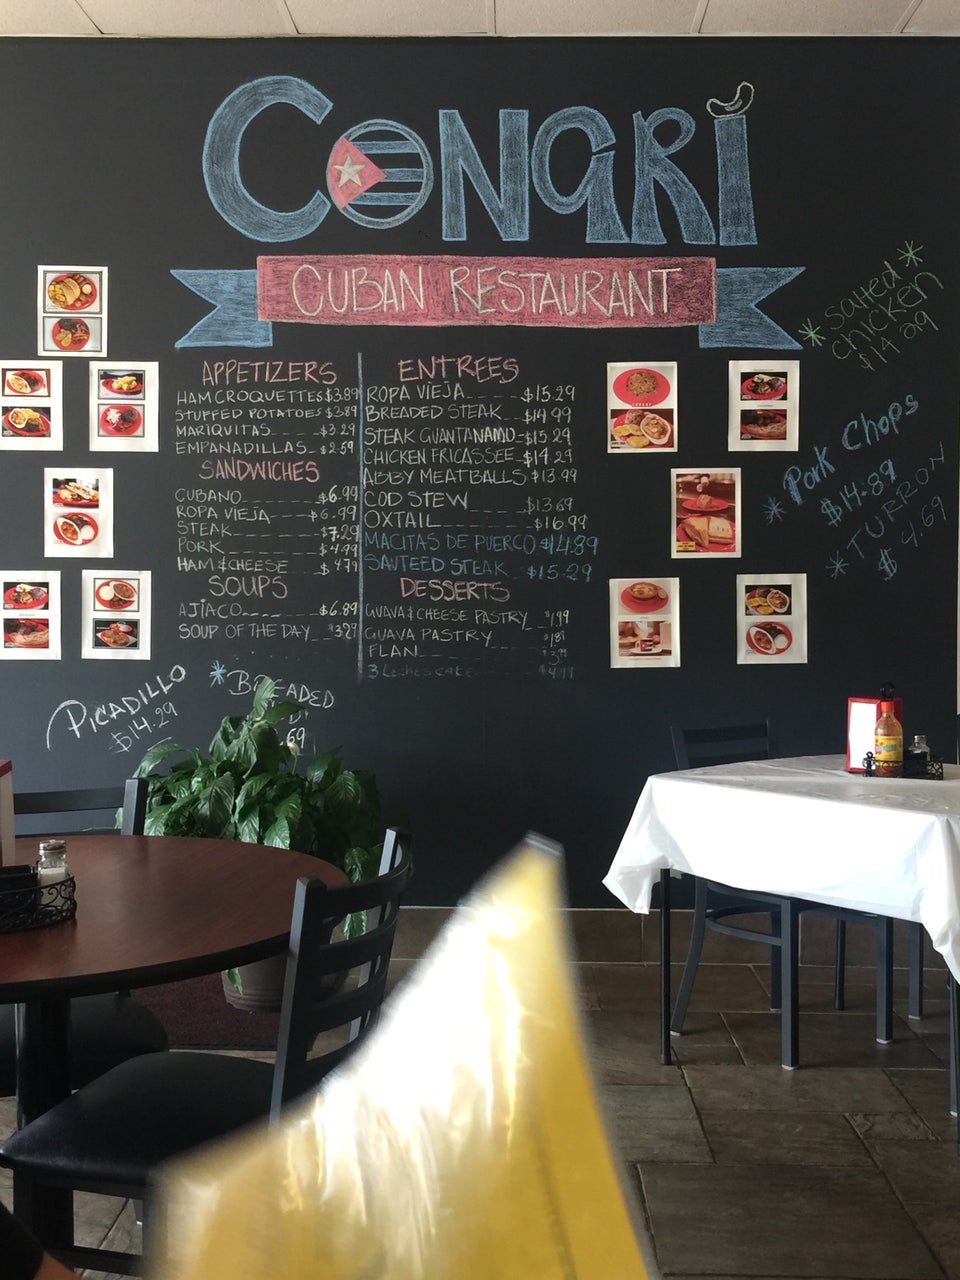 CONGRÍ
CUBAN RESTAURANT
APPETIZERS
HAM CROQUETTES $3.89
STUFFED POTATOES $3.89
MARIQUITAS $3.29
EMPANADILLAS $2.59
SANDWICHES
CUBANO $6.99
ROPA VIEJA $6.99
STEAK $7.29
PORK $4.99
HAM & CHEESE $4.79
SOUPS
AJIACO $6.89
SOUP OF THE DAY $3.29
ENTREES
ROPA VIEJA $15.29
BREADED STEAK $14.99
STEAK GUANTANAMO $15.29
CHICKEN FRICASSEE $14.29
ABBY MEATBALLS $13.99
COD STEW $13.69
OXTAIL $16.99
MACITAS DE PUERCO $14.89
SAUTEED STEAK $15.29
DESSERTS
GUAVA & CHEESE PASTRY $1.99
GUAVA PASTRY
FLAN
3 Leches cake $4.99
* Sauteed *
chicken
$14.99
* Pork Chops
$14.89
* TURRON
$ 4.69
PICADILLO
$14.29
* BREADED